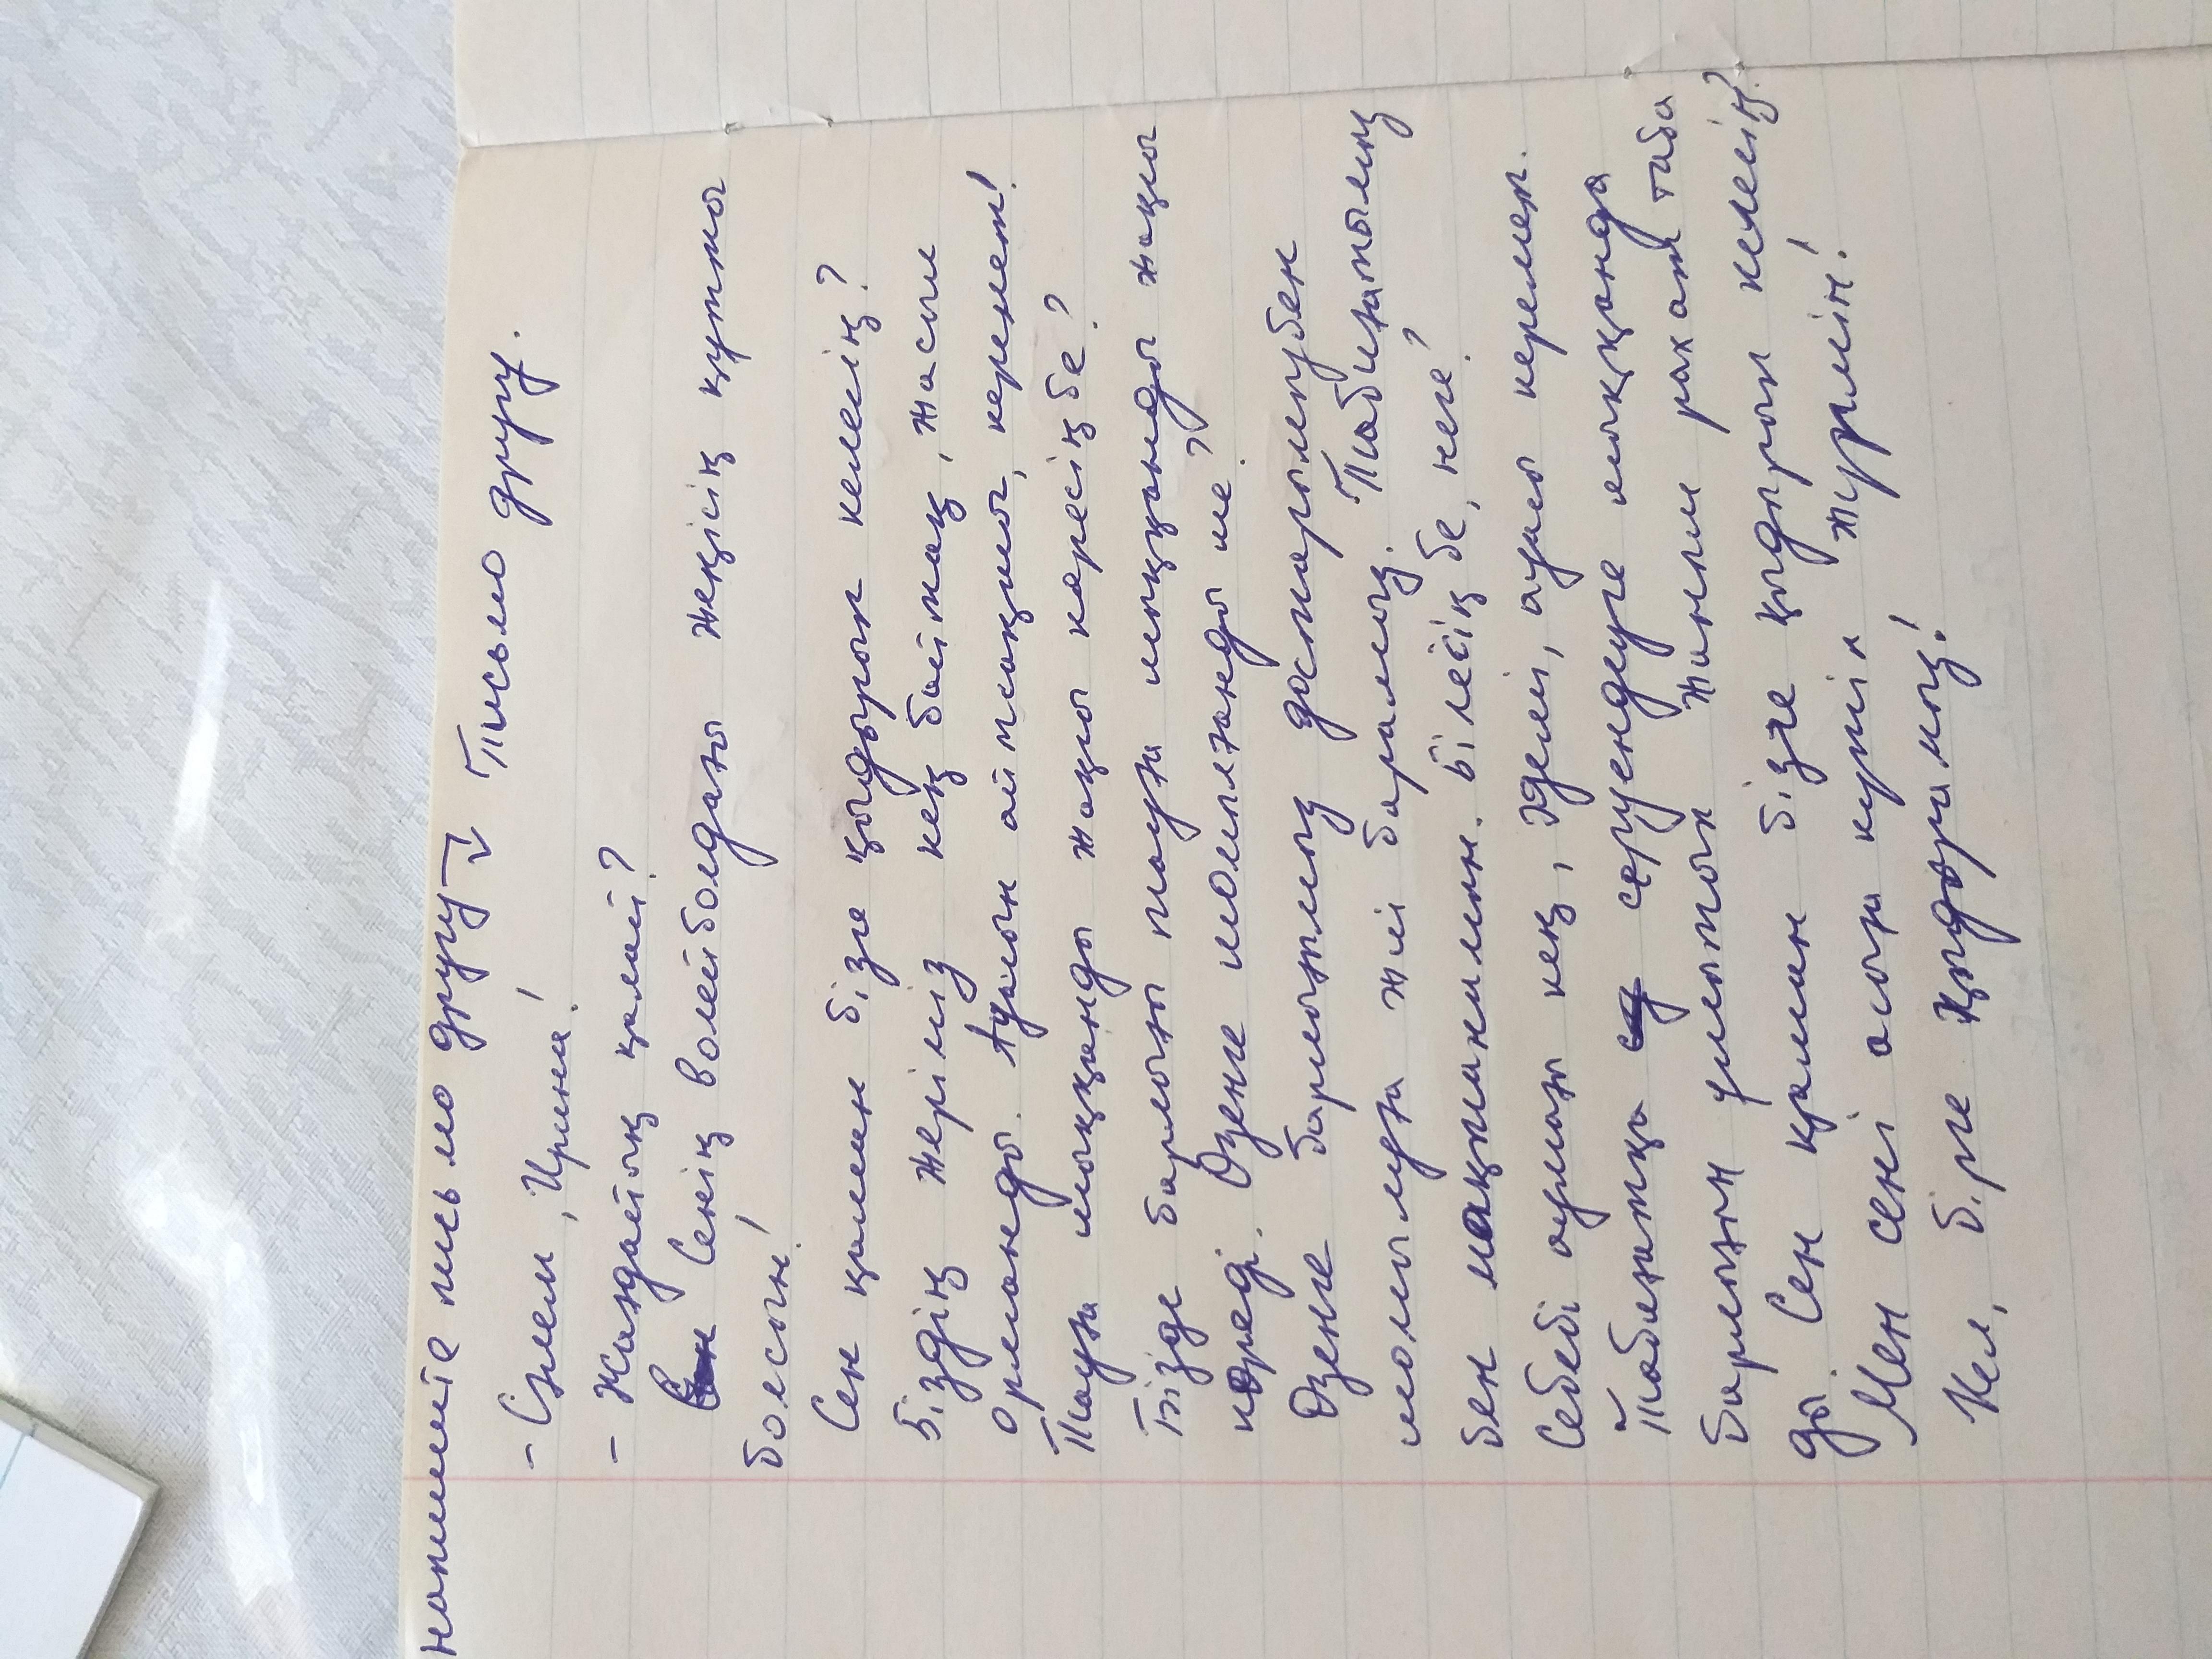 напишите письмо другу Письмо другу.
- Сәлем, Ирина!
- Жағдайың қалай?
Сенің волейболдағы жеңісің құтты
болсын!
Сен қашан бізге қыдырып келесің?
Біздің жеріміз кең байтақ, жасыл
орманды. Ауылын айтсаңшы, керемет!
Тауға шыққанды жақсы көресің бе?
Бізде барлығы тауға шыққанды жақсы
көреді. Өзенге шомылғанды ше?
Өзенге барлығымыз достарымызбен
шомылуға жиі барамыз. Табиғатымыз
бен мақтанамын. Білесің бе, неге?
Себебі аумағы кең, әдемі, ауасы керемет.
Табиғатқа серуендеуге шыққанда
барлығың ұмытып жаның рахат таба
ды. Сен қашан бізге қыдырып келесің?
Мен сені асыға күтіп жүрмін!
Кел, бірге қыдырамыз!